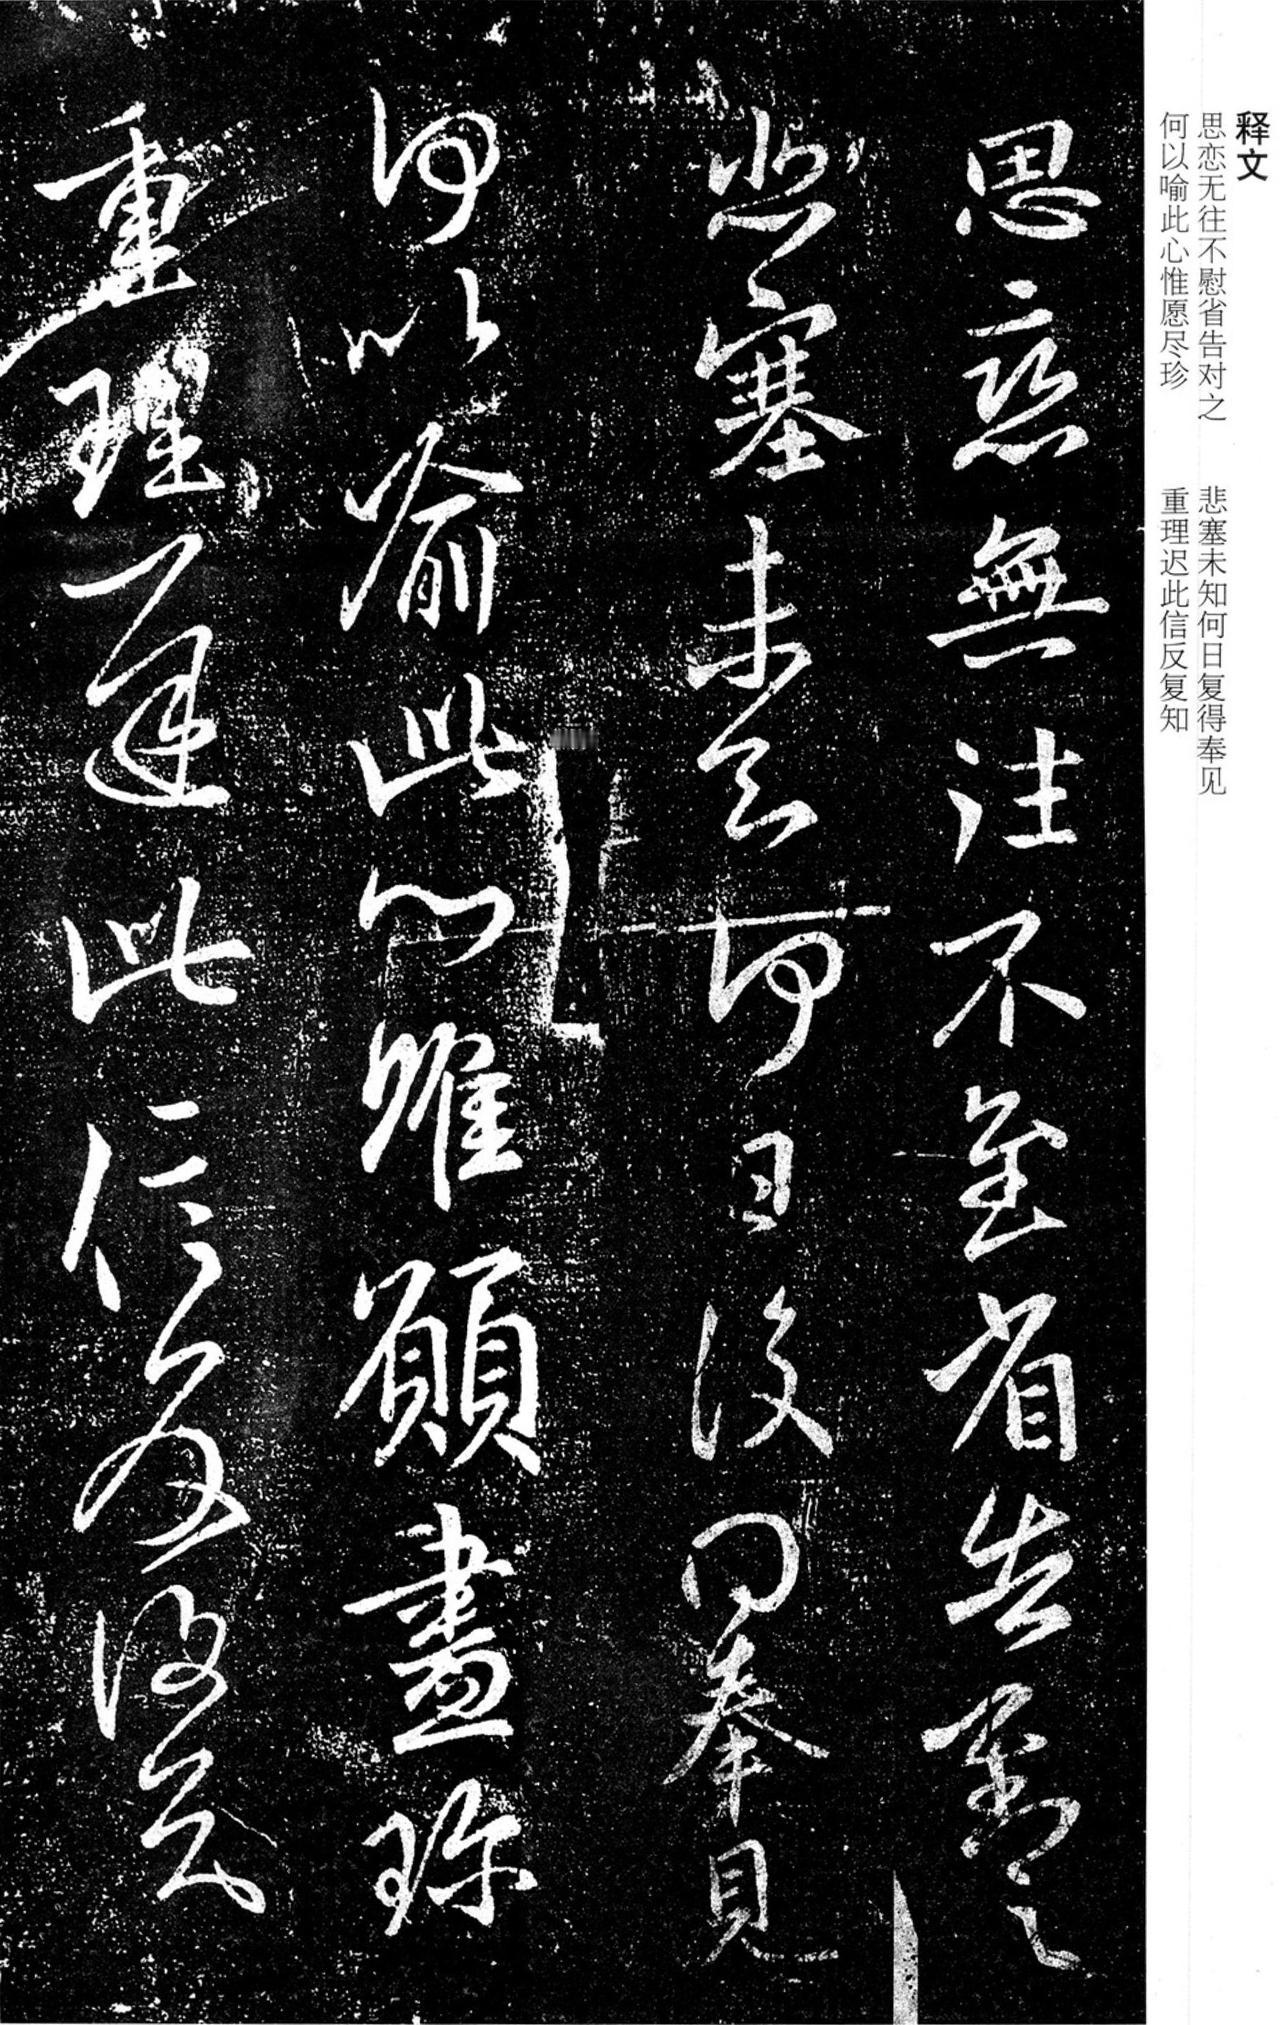 释文
思恋无往不慰省告对之
悲塞未知何日复得奉见
何以喻此心惟愿尽珍
重理迟此信反复知
思戀無往不至省告對之
悲塞未知何日復得奉見
何以喻此心惟願盡珍
重理遲此信反復知